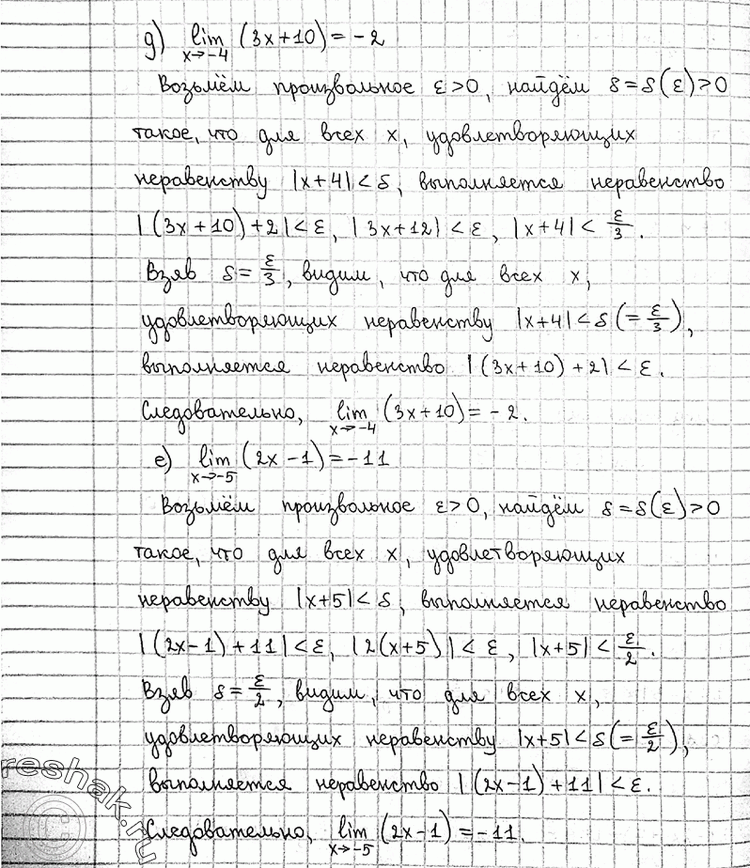 д) lim x→-4 (3x+10) = -2
Возьмём произвольное ε>0, найдём δ=δ(ε)>0
такое, что для всех x, удовлетворяющих
неравенству |x+4|<δ, выполняется неравенство
|(3x+10)+2|<ε, |3x+12|<ε, |x+4|<ε/3.
Взяв δ=ε/3, видим, что для всех x,
удовлетворяющих неравенству |x+4|<δ(=ε/3),
выполняется неравенство |(3x+10)+2|<ε.
Следовательно, lim x→-4 (3x+10)=-2.
е) lim x→-5 (2x-1)=-11
Возьмём произвольное ε>0, найдём δ=δ(ε)>0
такое, что для всех x, удовлетворяющих
неравенству |x+5|<δ, выполняется неравенство
|(2x-1)+11|<ε, |2(x+5)|<ε, |x+5|<ε/2.
Взяв δ=ε/2, видим, что для всех x,
удовлетворяющих неравенству |x+5|<δ(=ε/2),
выполняется неравенство |(2x-1)+11|<ε.
Следовательно, lim x→-5 (2x-1)=-11.
reshak.ru
©